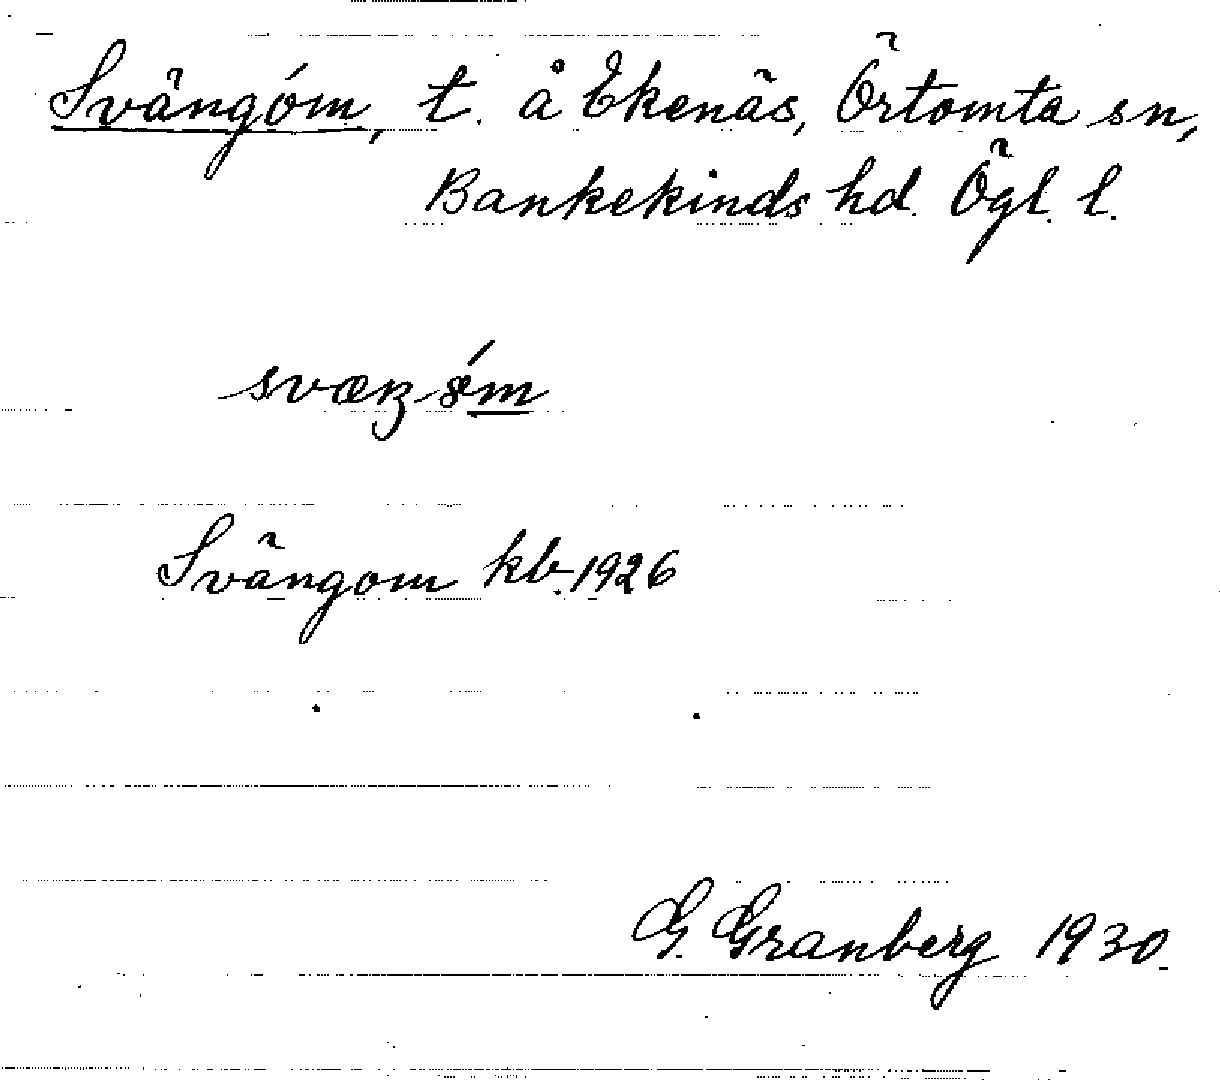 Svängóm, t. å Ekenäs, Örtomta sn,
Bankekinds hd. Ögl. l.
Svängom kb. 1926
G. Granberg 1930.